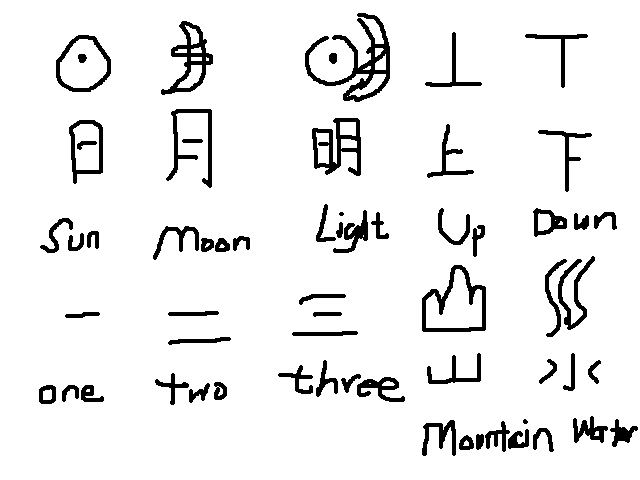 日 月 明 上 下
Sun Moon Light Up Down
一 二 三
山 水
one two three
Mountain Water